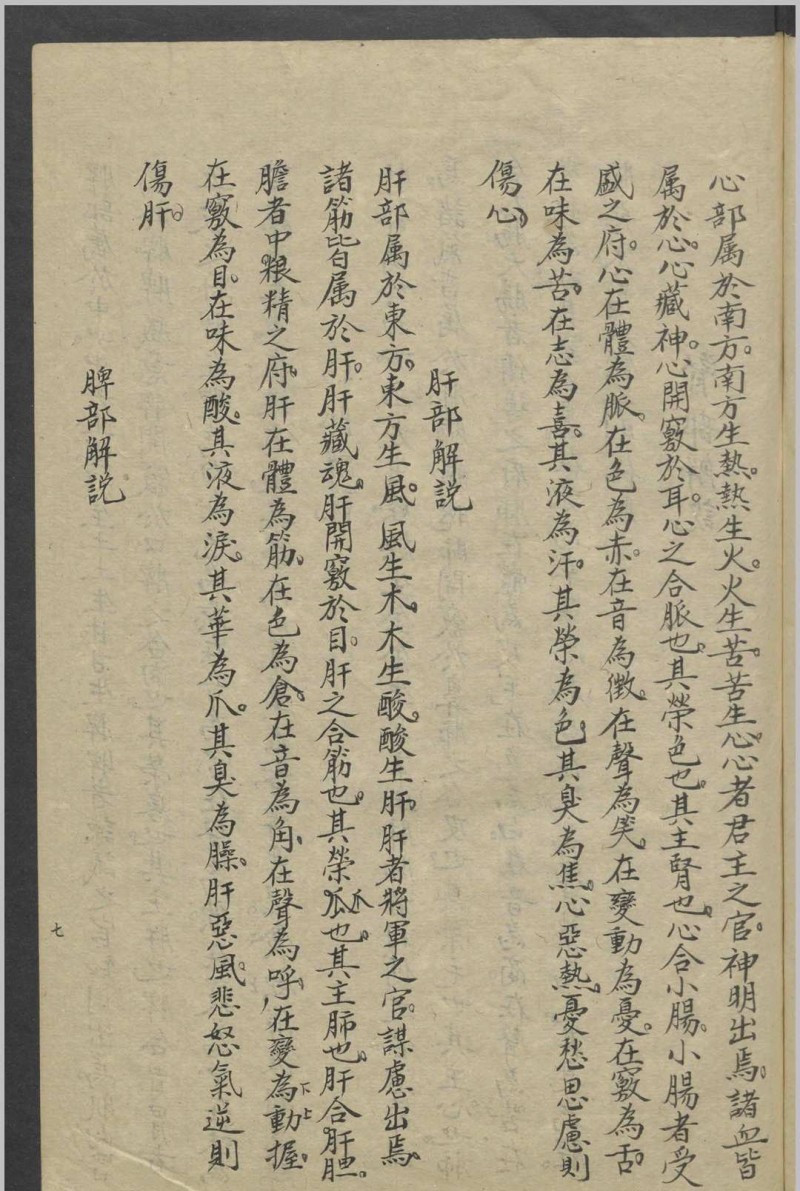 心部属於南方。南方生熱。熱生火。火生苦。苦生心。心者君主之官。神明出焉。諸血皆
属於心。心藏神。心開竅於耳。心之合脈也。其榮色也。其主腎也。心合小腸。小腸者受
盛之府。心在體為脈。在色為赤。在音為徴。在聲為笑。在變動為憂。在竅為舌。
在味為苦。在志為喜。其液為汗。其榮為色。其臭為焦。心惡熱。憂愁思慮則
傷心。
肝部解説
肝部属於東方。東方生風。風生木。木生酸。酸生肝。肝者將軍之官。謀慮出焉。
諸筋皆属於肝。肝藏魂。肝開竅於目。肝之合筋也。其榮瓜爪也。其主肺也。肝合肝膽。
膽者中粮精之府。肝在體為筋。在色為倉。在音為角。在聲為呼。在變為下動上握。
在竅為目。在味為酸。其液為淚。其華為爪。其臭為臊。肝惡風。悲怒氣逆則
傷肝。
脾部解説
七